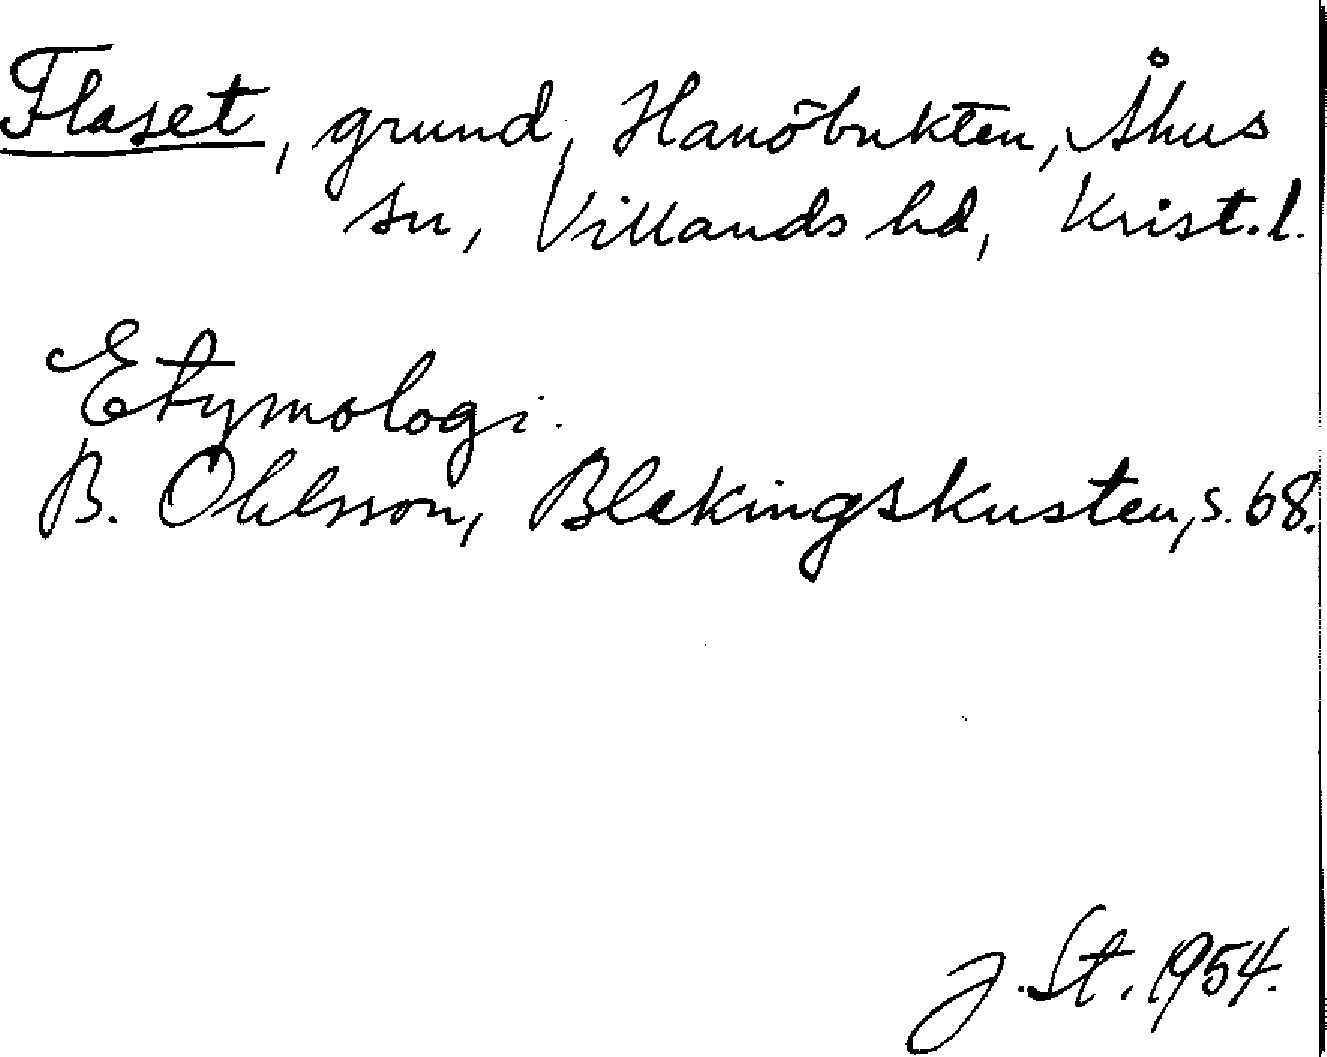 Flaset, grund, Hanöbukten, Åhus
sn, Villands hd, Krist.l.
Etymologi.
B. Ohlsson, Blekingskusten, s. 68.
J. St. 1954.